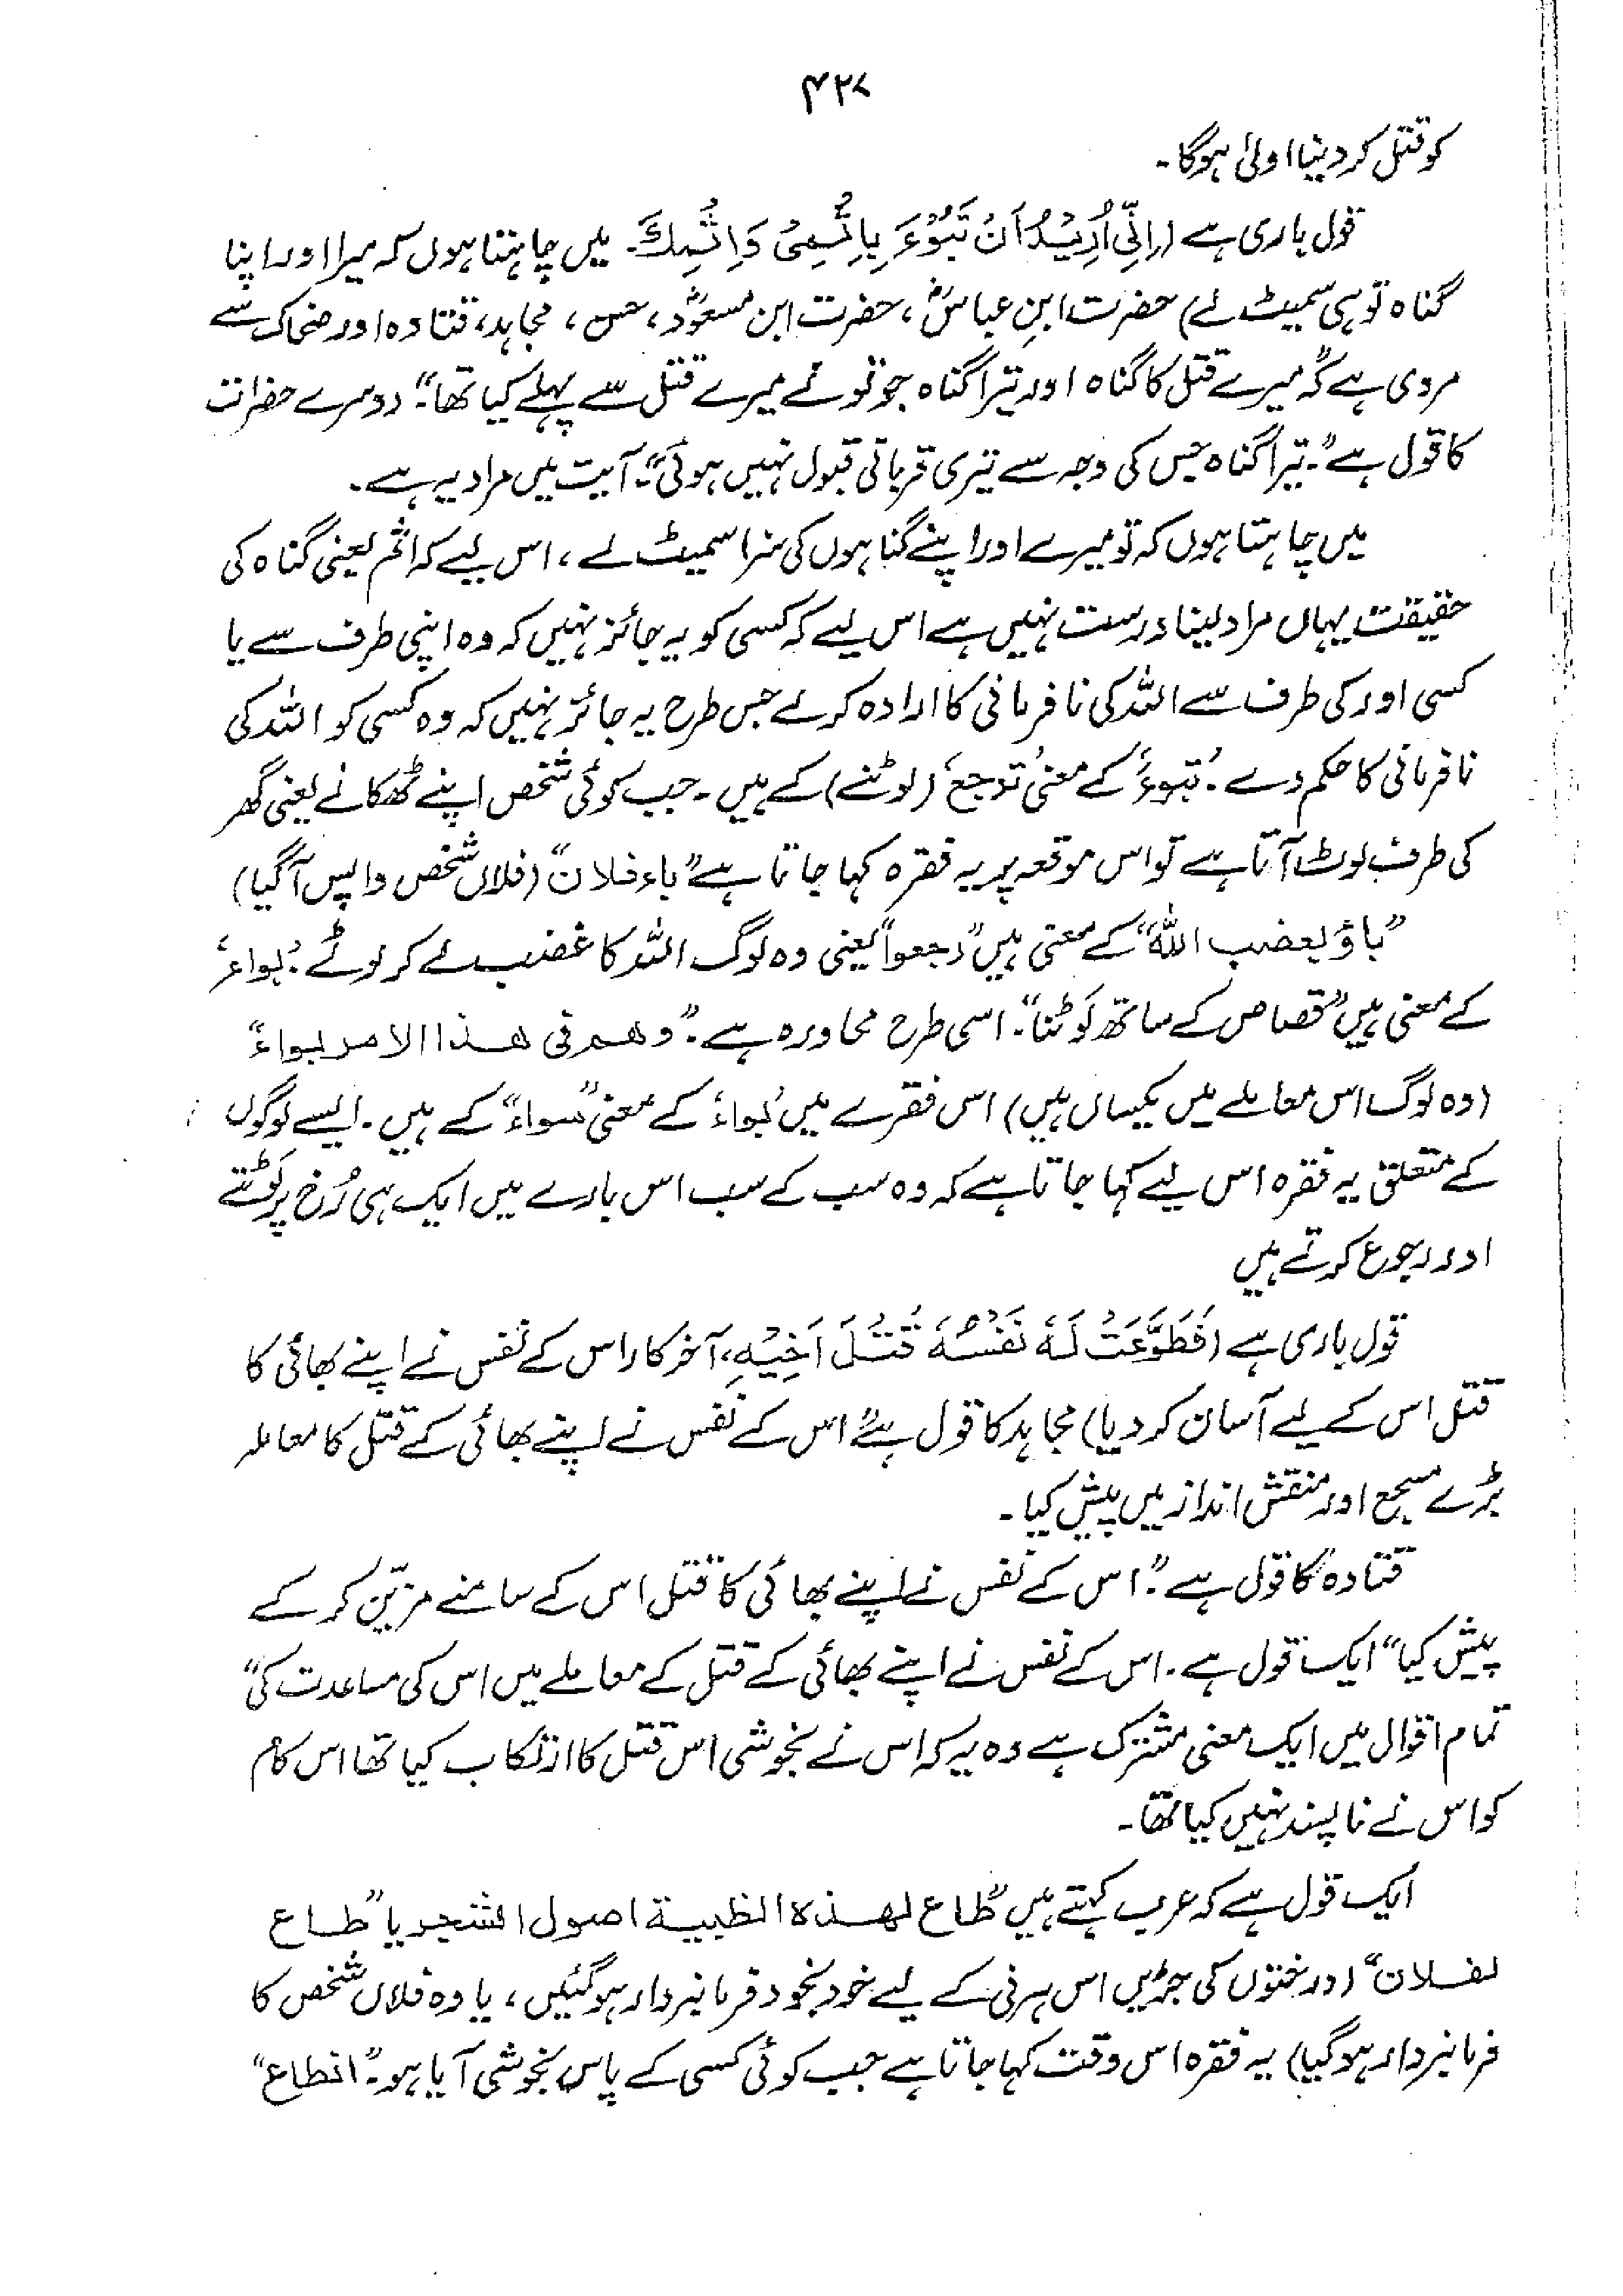 ۴۲۷
کو قتل کر دینا اولیٰ ہوگا۔
قول باری ہے (اِنِّیْ اُرِیْدُ اَنْ تَبُوْءَ بِاِثْمِیْ وَاِثْمِكَ۔ میں چاہتا ہوں کہ میرا اور اپنا
گناہ تو ہی سمیٹ لے) حضرت ابنِ عباسؓ، حضرت ابن مسعودؓ، حسن، مجاہد، قتادہ اور ضحاک سے
مروی ہے کہ "میرے قتل کا گناہ اور تیرا گناہ جو تو نے میرے قتل سے پہلے کیا تھا"۔ دوسرے حضرات
کا قول ہے۔ "تیرا گناہ جس کی وجہ سے تیری قربانی قبول نہیں ہوئی"۔ آیت میں مراد یہ ہے۔
میں چاہتا ہوں کہ تو میرے اور اپنے گناہوں کی سزا سمیٹ لے، اس لیے کہ اثم یعنی گناہ کی
حقیقت یہاں مراد لینا درست نہیں ہے اس لیے کہ کسی کو یہ جائز نہیں کہ وہ اپنی طرف سے یا
کسی اور کی طرف سے اللہ کی نافرمانی کا ارادہ کرے جس طرح یہ جائز نہیں کہ وہ کسی کو اللہ کی
نافرمانی کا حکم دے۔ 'تبوء' کے معنی 'ترجع' (لوٹنے) کے ہیں۔ جب کوئی شخص اپنے ٹھکانے یعنی گھر
کی طرف لوٹ آتا ہے تو اس موقعہ پر یہ فقرہ کہا جاتا ہے "باء فلان" (فلاں شخص واپس آگیا)
"باؤ بغضب اللہ" کے معنی ہیں "رجعوا" یعنی وہ لوگ اللہ کا غضب لے کر لوٹے۔ 'بواء'
کے معنی ہیں "قصاص کے ساتھ لَوٹنا"۔ اسی طرح محاورہ ہے۔ "وهم فی هذا الامر بواء"
(وہ لوگ اس معاملے میں یکساں ہیں) اس فقرے میں 'بواء' کے معنی "سواء" کے ہیں۔ ایسے لوگوں
کے متعلق یہ فقرہ اس لیے کہا جاتا ہے کہ وہ سب کے سب اس بارے میں ایک ہی رُخ پر لَوٹتے
اور رجوع کرتے ہیں
قول باری ہے (فَطَوَّعَتْ لَهٗ نَفْسُهٗ قَتْلَ اَخِیْهِ، آخر کار اس کے نفس نے اپنے بھائی کا
قتل اس کے لیے آسان کر دیا) مجاہد کا قول ہے "اس کے نفس نے اپنے بھائی کے قتل کا معاملہ
بڑے مسجع اور منقش انداز میں پیش کیا۔
قتادہ کا قول ہے۔ "اس کے نفس نے اپنے بھائی کا قتل اس کے سامنے مزیّن کر کے
پیش کیا" ایک قول ہے۔ اس کے نفس نے اپنے بھائی کے قتل کے معاملے میں اس کی مساعدت کی"
تمام اقوال میں ایک معنی مشترک ہے وہ یہ کہ اس نے بخوشی اس قتل کا ارتکاب کیا تھا اس کام
کو اس نے ناپسند نہیں کیا تھا۔
ایک قول ہے کہ عرب کہتے ہیں "طاع لهذه الظبیة اصول الشجر یا "طاع
لفلان" (درختوں کی جڑیں اس ہرنی کے لیے خود بخود فرمانبردار ہوگئیں، یا وہ فلاں شخص کا
فرمانبردار ہوگیا) یہ فقرہ اس وقت کہا جاتا ہے جب کوئی کسی کے پاس بخوشی آیا ہو۔ "انطاع"